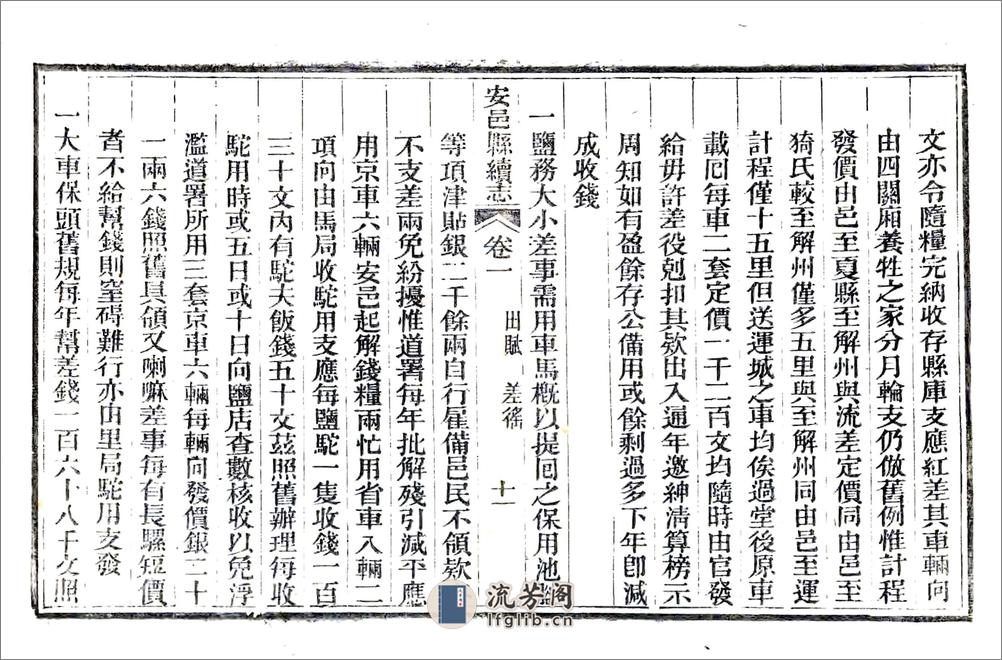 文亦令隨糧完納收存縣庫支應紅差其車輛向
由四關廂養牲之家分月輪支仍倣舊例惟計程
發價由邑至夏縣至解州與流差定價同由邑至
猗氏較至解州僅多五里與至解州同由邑至運
計程僅十五里但送運城之車均俟過堂後原車
載囘每車二套定價一千二百文均隨時由官發
給毋許差役剋扣其欵出入通年邀紳淸算榜示
周知如有盈餘存公備用或餘剩過多下年卽減
成收錢
一鹽務大小差事需用車馬槪以提囘之保用池
安邑縣續志 卷一 田賦 差徭 十一
等項津貼銀二千餘兩自行雇備邑民不領欵
不支差兩免紛擾惟道署每年批解殘引減平應
用京車六輛安邑起解錢糧兩忙用省車八輛二
項向由馬局收駝用支應每鹽駝一隻收錢一百
三十文內有駝夫飯錢五十文茲照舊辦理每收
駝用時或五日或十日向鹽店查數核收以免浮
濫道署所用三套京車六輛每輛向發價銀二十
一兩六錢照舊具領又喇嘛差事每有長騾短價
者不給幫錢則窒碍難行亦由里局駝用支發
一大車保頭舊規每年幫差錢一百六十八千文照
流芳阁
lfglib.cn